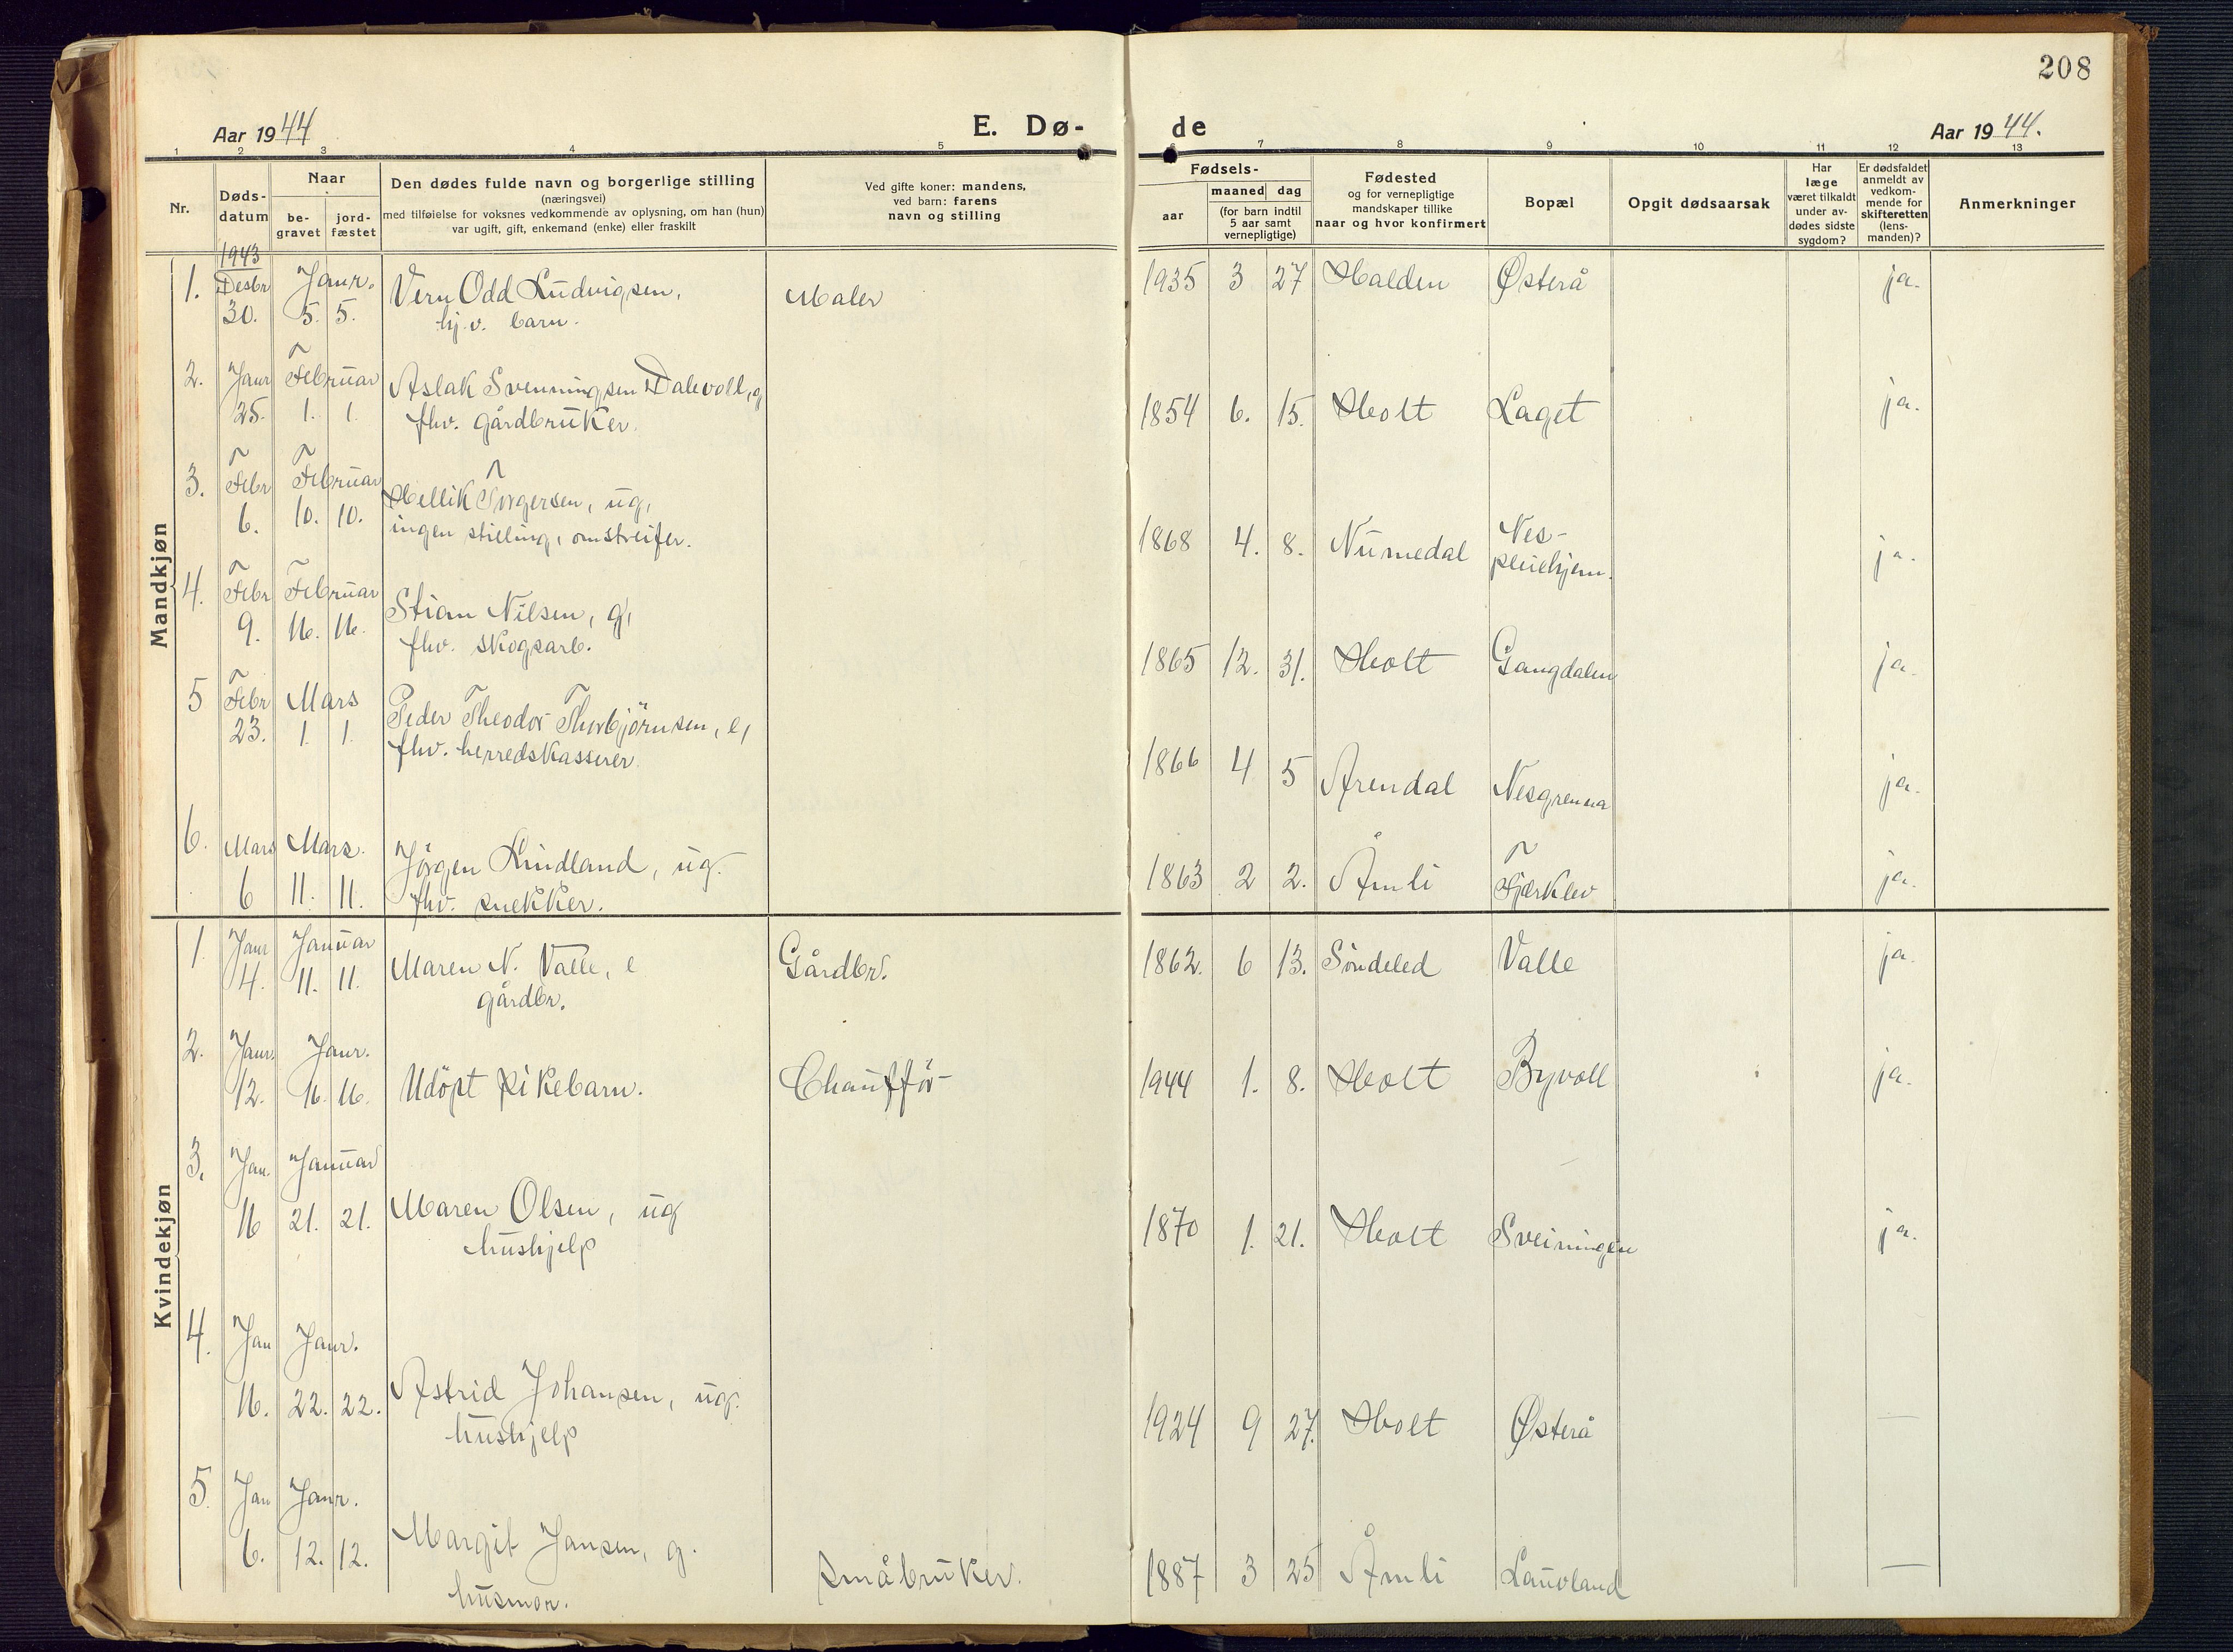 208
Aar 1944
E. Dø-
de
Aar 1944.
1 2 3 4 5 6 7 8 9 10 11 12 13
Nr.
Døds-
datum
Naar
be-
gravet
jord-
fæstet
Den dødes fulde navn og borgerlige stilling
(næringsvei)
med tilføielse for voksnes vedkommende av oplysning, om han (hun)
var ugift, gift, enkemand (enke) eller fraskilt
Ved gifte koner: mandens,
ved barn: farens
navn og stilling
Fødsels-
aar
maaned dag
(for barn indtil
5 aar samt
vernepligtige)
Fødested
og for vernepligtige
mandskaper tillike
naar og hvor konfirmert
Bopæl
Opgit dødsaarsak
Har
læge
været tilkaldt
under av-
dødes sidste
sygdom?
Er dødsfaldet
anmeldt av
vedkom-
mende for
skifteretten
(lens-
manden)?
Anmerkninger
Mandkjøn
1943
1. Desbr Janr. Vern Odd Ludvigsen, Maler 1935 3 27 Halden Østerå ja.
30. 5. 5. hj.v. barn.
2. Janr Februar Aslak Svenningsen Dalevoll, g
25. 1. 1. fhv. gårdbruker. 1854 6. 15. Holt Laget ja.
3. Febr Februar Hellik Torgersen, ug,
6. 10. 10. ingen stilling, omstreifer. 1868 4. 8. Numedal Nes-
pleiehjem. ja.
4. Febr Februar Stian Nilsen, g,
9. 16. 16. fhv. skogsarb. 1865 12. 31. Holt Gangdalen ja.
5 Febr Mars Peder Theodor Thorbjörnsen, e,
23. 1. 1. fhv. herredskasserer. 1866 4 5 Arendal Nesgrenna ja.
6. Mars Mars. Jörgen Lindland, ug.
6 11. 11. fhv. snekker. 1863 2 2. Åmli Fjærklev ja.
Kvindekjøn
1. Janr Januar Maren N. Valle, e Gårdbr. 1862. 6 13. Söndeled Valle ja.
4. 11. 11. gårdbr.
2. Janr. Janr.
12. 16. 16. Udöpt pikebarn. Chaufför 1944 1. 8. Holt Byvoll ja.
3. Jan. Januar
16 21. 21. Maren Olsen, ug 1870 1. 21. Holt Sveiningen ja.
hushjelp
4. Jan Janr.
16. 22. 22. Astrid Johansen, ug. 1924 9 27. Holt Østerå —
hushjelp
5. Jan Janr.
6. 12. 12. Margit Jansen, g. Småbruker. 1887 3 25 Åmli Lauvland —
husmor.